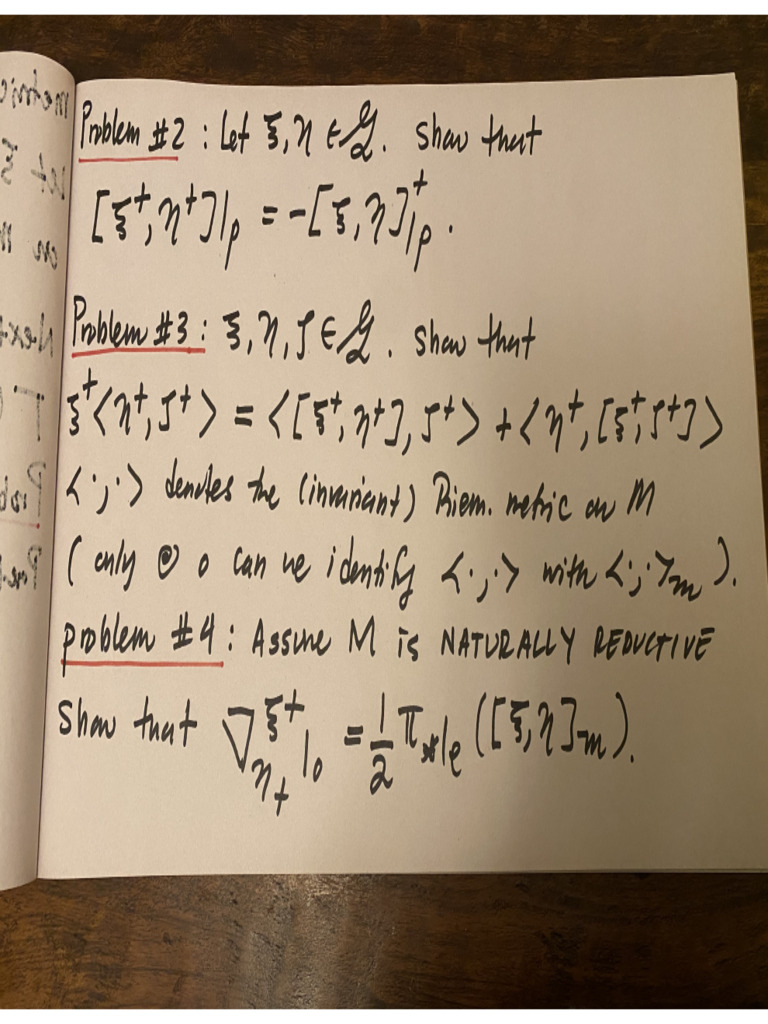 Problem #2 : Let ξ, η ∈ 𝒢. Show that
[ξ⁺, η⁺]|p = -[ξ, η]⁺|p .
Problem #3 : ξ, η, ζ ∈ 𝒢. Show that
ξ⁺<η⁺, ζ⁺> = <[ξ⁺, η⁺], ζ⁺> + <η⁺, [ξ⁺, ζ⁺]>
<·,·> denotes the (invariant) Riem. metric on M
( only @ o can we identify <·,·> with <·,·>m ).
problem #4 : Assume M is NATURALLY REDUCTIVE
Show that ∇η+ ξ⁺|o = 1/2 π*|e ([ξ, η]m).